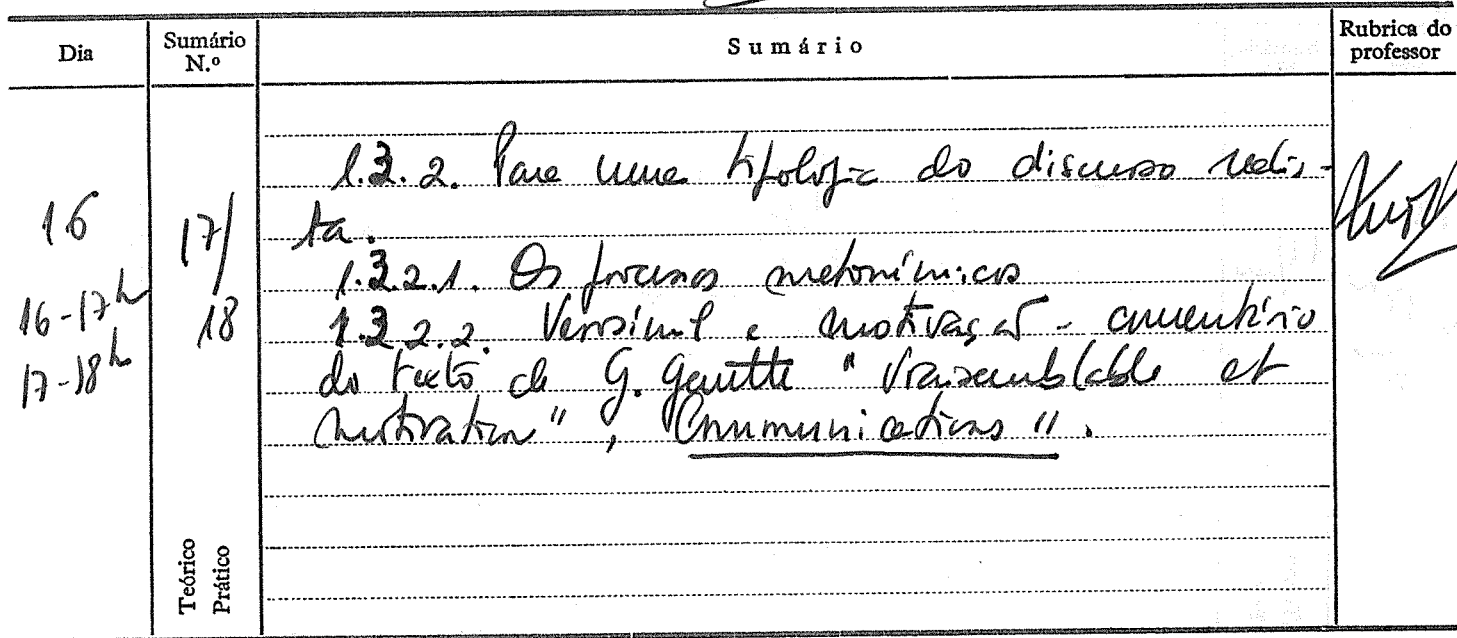 Dia
Sumário N.º
Sumário
Rubrica do professor
16
16-17h
17-18h
17/
18
1.3.2. Para uma tipologia do discurso realis-
ta.
1.3.2.1. Os processos metonímicos
1.3.2.2. Verosímil e motivação - comentário
do texto de G. Genette "Vraisemblable et
motivation", "Communications 11.
Teórico
Prático